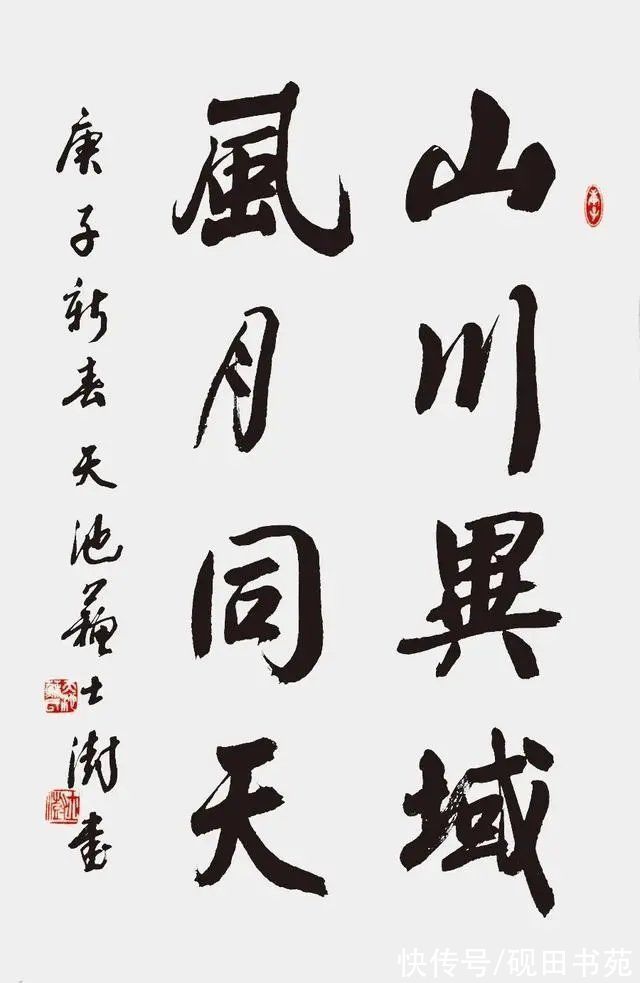 山川異域
風月同天
庚子新春天池蘇士澍書
快传号/砚田书苑